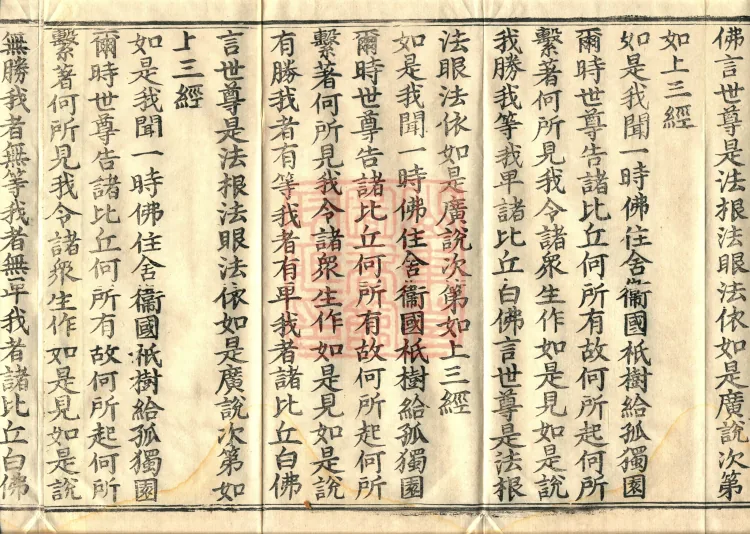 佛言世尊是法根法眼法依如是廣說次第
如上三經
如是我聞一時佛住舍衞國祇樹給孤獨園
爾時世尊告諸比丘何所有故何所起何所
繫著何所見我令諸衆生作如是見如是說
我勝我等我卑諸比丘白佛言世尊是法根
法眼法依如是廣說次第如上三經
如是我聞一時佛住舍衞國祇樹給孤獨園
爾時世尊告諸比丘何所有故何所起何所
繫著何所見我令諸衆生作如是見如是說
有勝我者有等我者有卑我者諸比丘白佛
言世尊是法根法眼法依如是廣說次第如
上三經
如是我聞一時佛住舍衞國祇樹給孤獨園
爾時世尊告諸比丘何所有故何所起何所
繫著何所見我令諸衆生作如是見如是說
無勝我者無等我者無卑我者諸比丘白佛